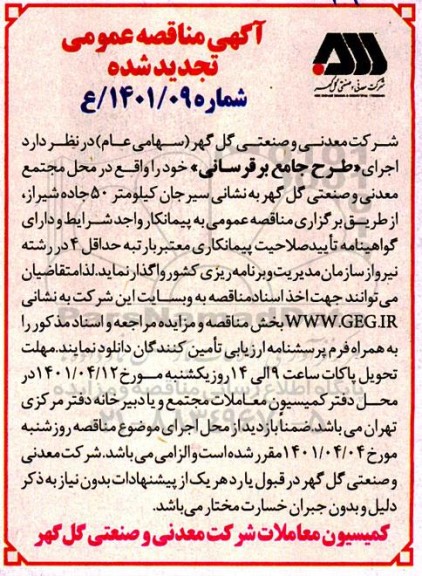 آگهی مناقصه عمومی
تجدید شده
شماره ۱۴۰۱/۰۹/ع
شرکت معدنی و صنعتی گل گهر
شرکت معدنی و صنعتی گل گهر (سهامی عام) در نظر دارد
اجرای «طرح جامع برقرسانی» خود را واقع در محل مجتمع
معدنی و صنعتی گل گهر به نشانی سیرجان کیلومتر ۵۰ جاده شیراز،
از طریق برگزاری مناقصه عمومی به پیمانکار واجد شرایط و دارای
گواهینامه تأیید صلاحیت پیمانکاری معتبر با رتبه حداقل ۴ در رشته
نیرو از سازمان مدیریت و برنامه ریزی کشور واگذار نماید. لذا متقاضیان
می توانند جهت اخذ اسناد مناقصه به وبسایت این شرکت به نشانی
WWW.GEG.IR بخش مناقصه و مزایده مراجعه و اسناد مذکور را
به همراه فرم پرسشنامه ارزیابی تأمین کنندگان دانلود نمایند. مهلت
تحویل پاکات ساعت ۹ الی ۱۴ روز یکشنبه مورخ ۱۴۰۱/۰۴/۱۲ در
محل دفتر کمیسیون معاملات مجتمع و یا دبیرخانه دفتر مرکزی
تهران می باشد. ضمنا بازدید از محل اجرای موضوع مناقصه روز شنبه
مورخ ۱۴۰۱/۰۴/۰۴ مقرر شده است و الزامی می باشد. شرکت معدنی
و صنعتی گل گهر در قبول یا رد هر یک از پیشنهادات بدون نیاز به ذکر
دلیل و بدون جبران خسارت مختار می باشد.
کمیسیون معاملات شرکت معدنی و صنعتی گل گهر